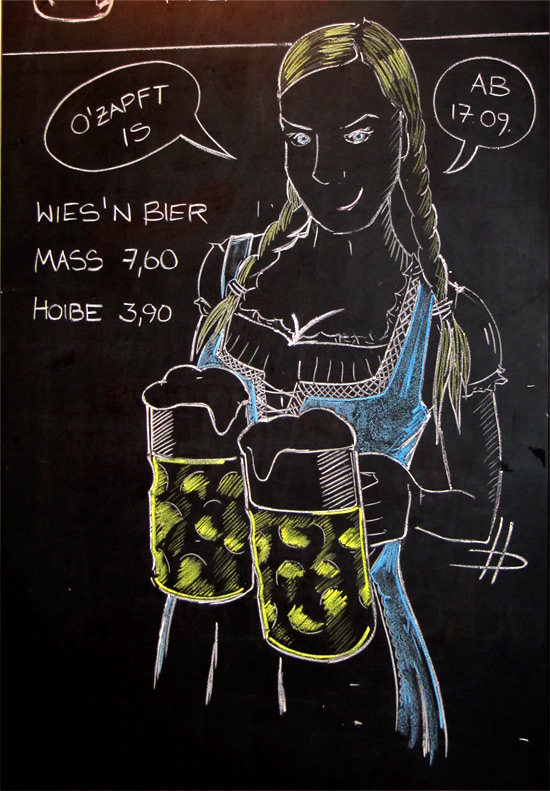 O'ZAPFT
IS
AB
17.09.
WIES'N BIER
MASS 7,60
HOIBE 3,90